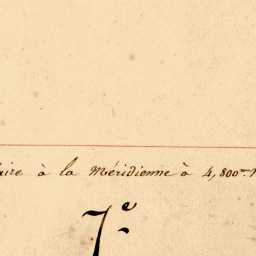 à la Méridienne à 4,800
7.e